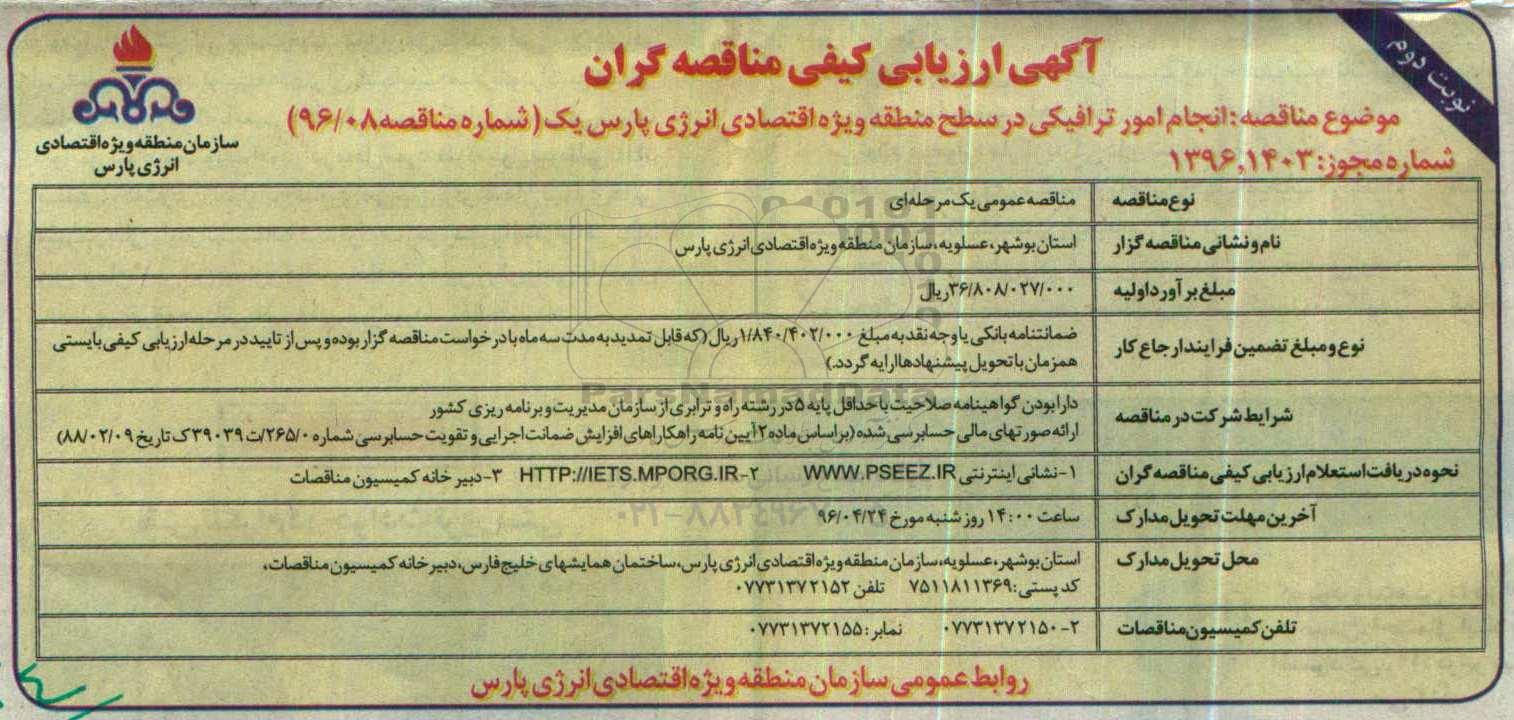 نوبت دوم
آگهی ارزیابی کیفی مناقصه گران
موضوع مناقصه: انجام امور ترافیکی در سطح منطقه ویژه اقتصادی انرژی پارس یک (شماره مناقصه ۹۶/۰۸)
شماره مجوز: ۱۳۹۶,۱۴۰۳
سازمان منطقه ویژه اقتصادی
انرژی پارس
نوع مناقصه مناقصه عمومی یک مرحله‌ای
نام و نشانی مناقصه گزار استان بوشهر، عسلویه، سازمان منطقه ویژه اقتصادی انرژی پارس
مبلغ برآورد اولیه ۳۶/۸۰۸/۰۲۷/۰۰۰ ریال
نوع و مبلغ تضمین فرایند ارجاع کار ضمانتنامه بانکی یا وجه نقد به مبلغ ۱/۸۴۰/۴۰۲/۰۰۰ ریال (که قابل تمدید به مدت سه ماه با درخواست مناقصه گزار بوده و پس از تایید در مرحله ارزیابی کیفی بایستی
همزمان با تحویل پیشنهادها ارایه گردد.)
شرایط شرکت در مناقصه دارا بودن گواهینامه صلاحیت با حداقل پایه ۵ در رشته راه و ترابری از سازمان مدیریت و برنامه ریزی کشور
ارائه صورتهای مالی حسابرسی شده (براساس ماده ۲ آیین نامه راهکارهای افزایش ضمانت اجرایی و تقویت حسابرسی شماره ۲۶۵/۰/ت ۳۹۰۳۹ ک تاریخ ۸۸/۰۲/۰۹)
نحوه دریافت استعلام ارزیابی کیفی مناقصه گران ۱- نشانی اینترنتی WWW.PSEEZ.IR ۲- HTTP://IETS.MPORG.IR ۳- دبیر خانه کمیسیون مناقصات
آخرین مهلت تحویل مدارک ساعت ۱۴:۰۰ روز شنبه مورخ ۹۶/۰۴/۲۴
محل تحویل مدارک استان بوشهر، عسلویه، سازمان منطقه ویژه اقتصادی انرژی پارس، ساختمان همایشهای خلیج فارس، دبیرخانه کمیسیون مناقصات،
کد پستی: ۷۵۱۱۸۱۱۳۶۹ تلفن ۰۷۷۳۱۳۷۲۱۵۲
تلفن کمیسیون مناقصات ۲-۰۷۷۳۱۳۷۲۱۵۰ نمابر: ۰۷۷۳۱۳۷۲۱۵۵
روابط عمومی سازمان منطقه ویژه اقتصادی انرژی پارس
ParsNamadData